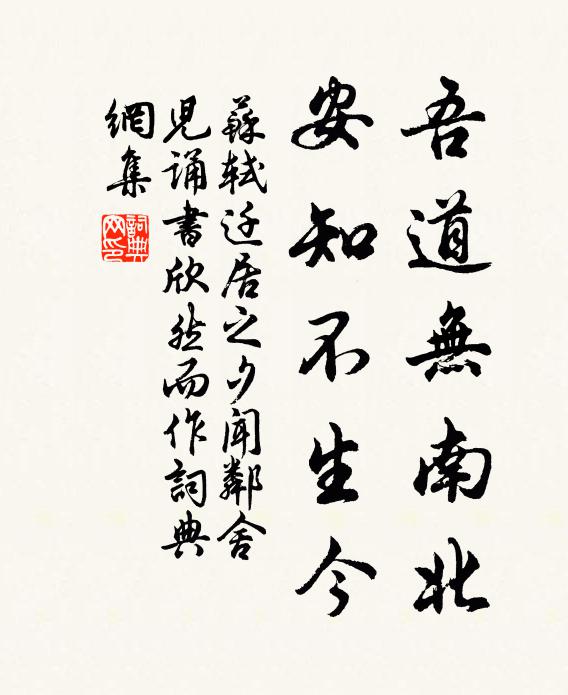 吾道無南北
安知不生今
蘇軾遷居之夕聞鄰舍
兒誦書欣然而作詞典
網集
詞典網印